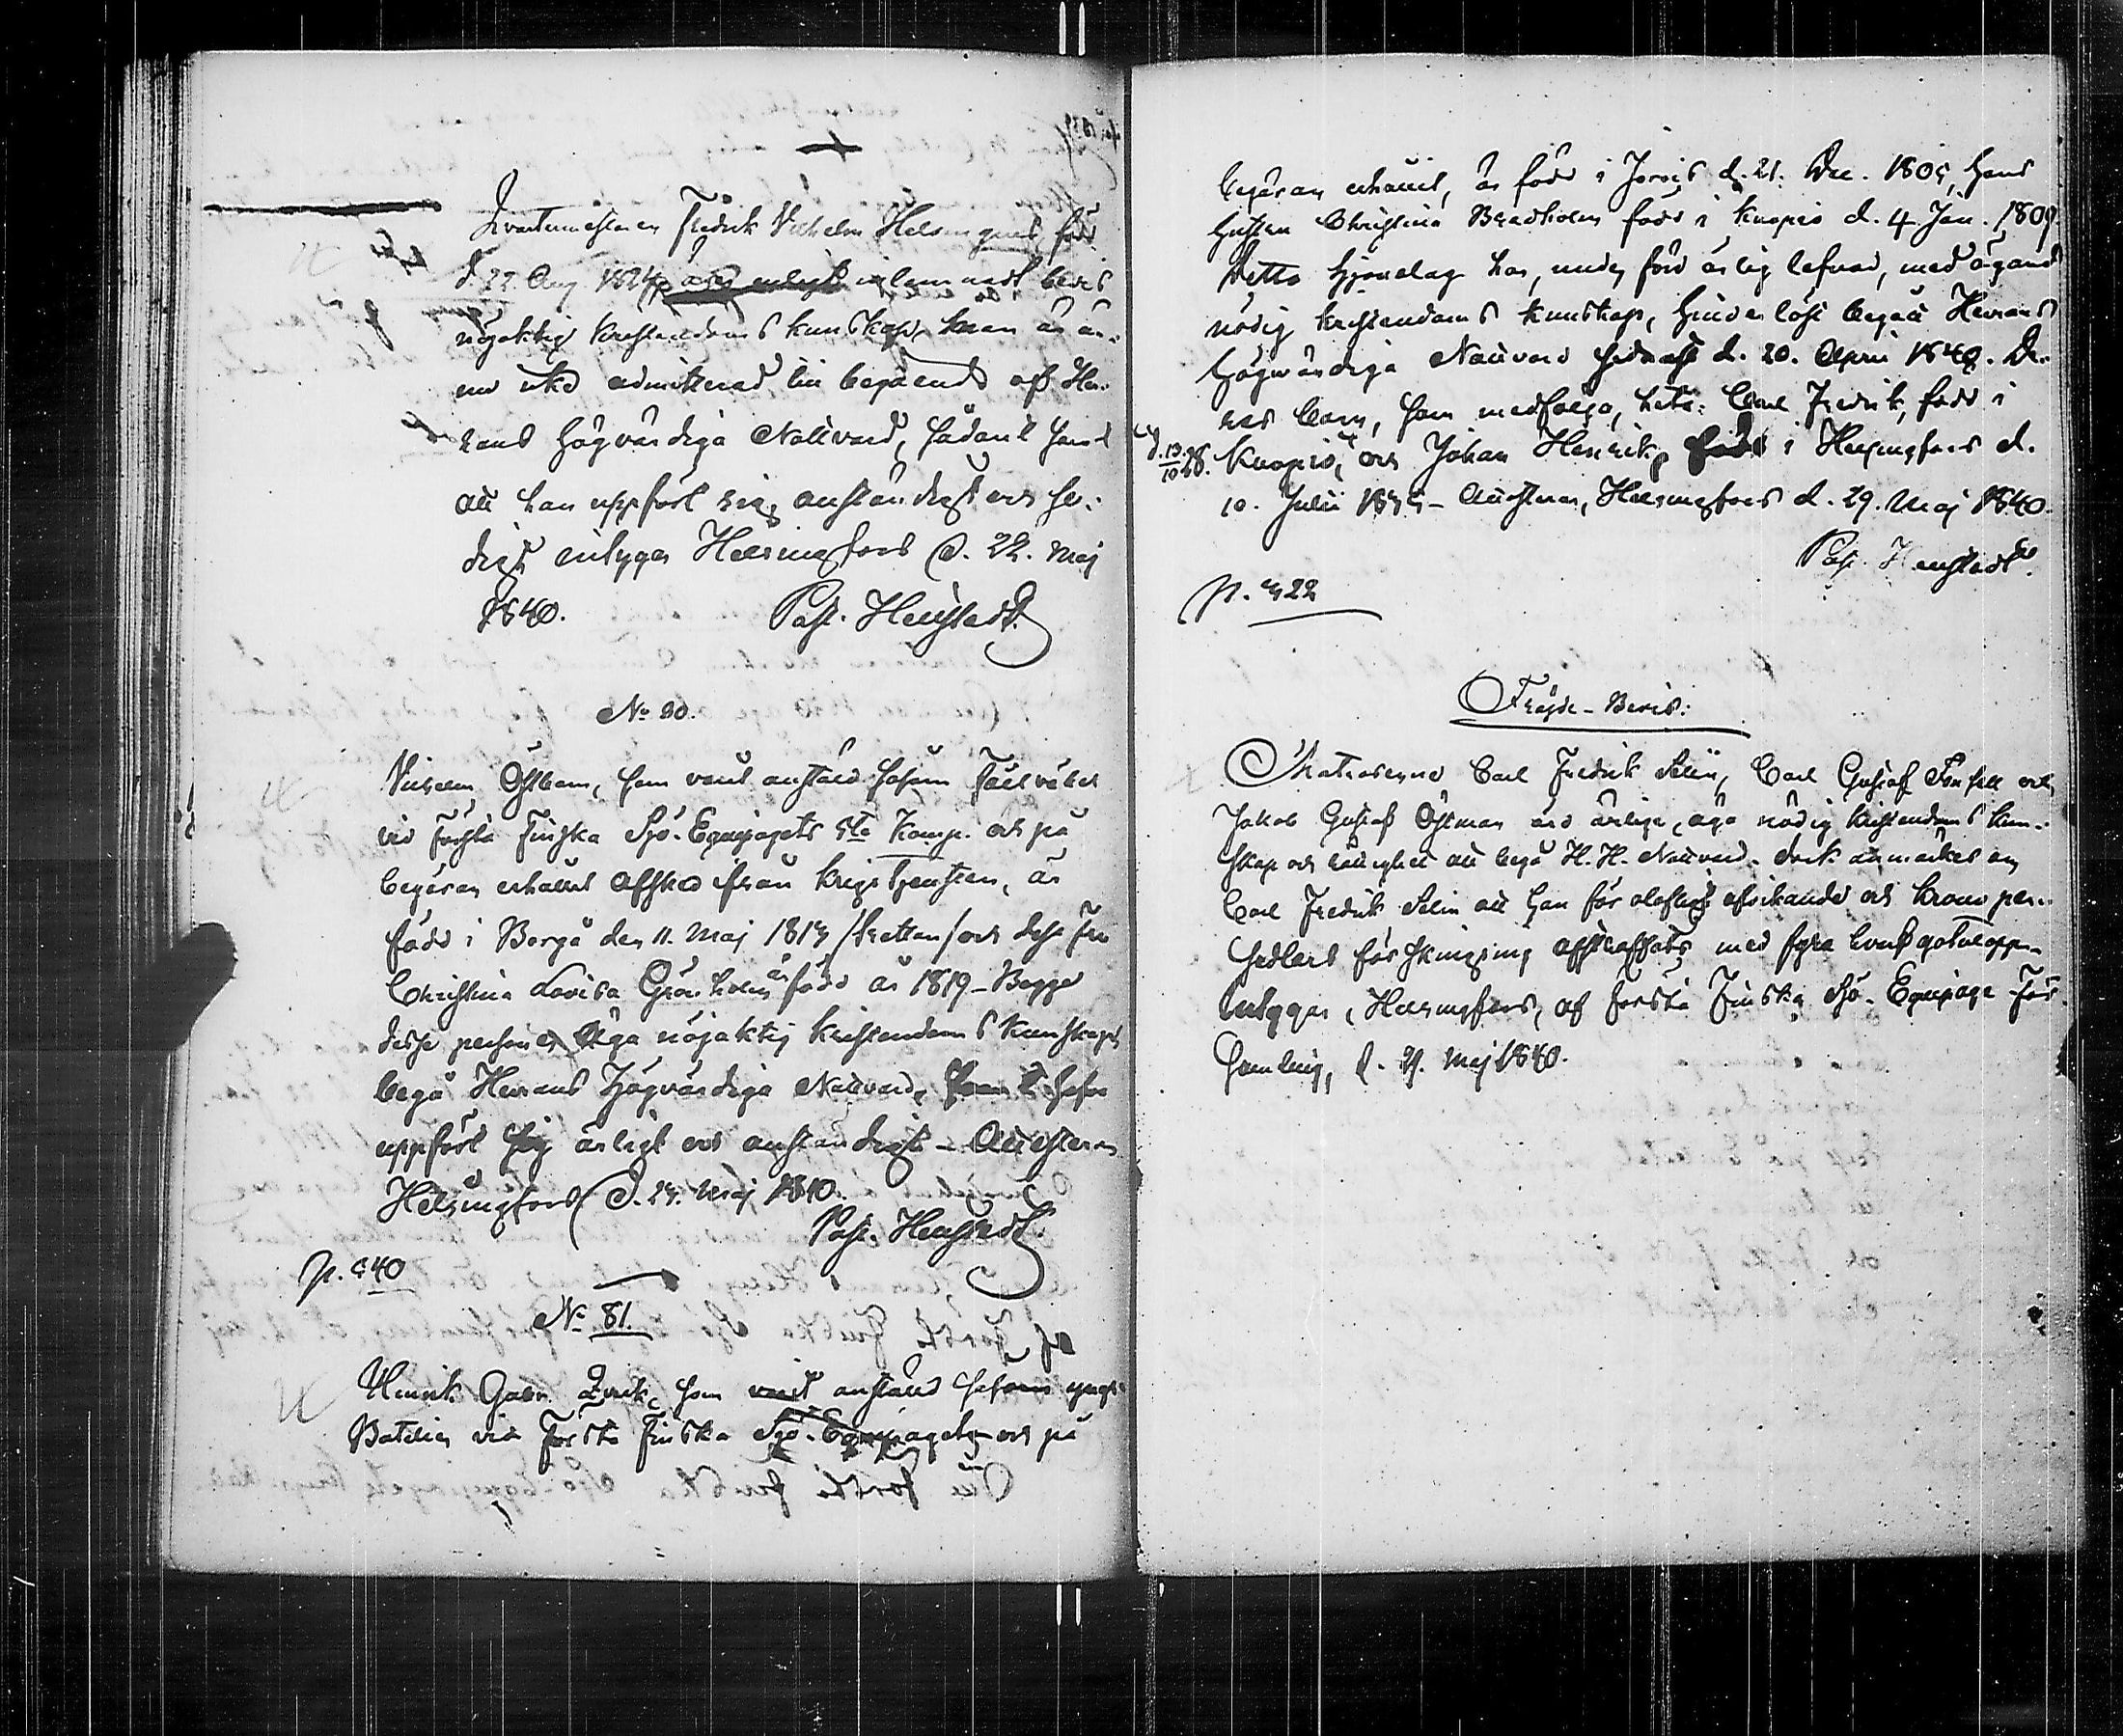 Kvartermästaren Fredrik Vilhelm Helsingius, född
d. 22. Aug. 1824, äger enligt inlemnadt bevis
nöjaktig kristendoms kunskap, men är än-
nu icke admitterad till begående af Her-
rans högvärdiga Nattvard, sådant samt
att han uppfört sig anständigt och se-
digt intygar Helsingfors d. 22. Maj
1840. Past. Henstedt.
No 80.
Vilhelm Östbom, som varit anstäld såsom Fältväbel
vid Första Finska Sjö-Equipagets 5te Komp. och på
begäran erhållit afsked ifrån krigstjensten, är
född i Borgå den 11. Maj 1813 /tretton/ och dess Fru
Christina Lovisa Grönholm är född år 1819 - Begge
desse personer äga nöjaktig kristendoms kunskap,
begå Herrans Högvärdiga Nattvard, samt hafva
uppfört sig ärligt och anständigt - Attesteras
Helsingfors d. 23. Maj 1840.
Past. Henstedt.
p. 540
No 81.
Henrik Gabr. Qvick, som varit anstäld såsom yngre
Batelier vid Första Finska Sjö-Equipaget och på
begäran erhållit, är född i Jorois d. 21. Dec. 1805, hans
hustru Christina Bradholm född i Kuopio d. 4 Jan. 1809.
Detta hjonelag har, under förd ärlig lefnad, med ägand
nödig kristendoms kunskap, hinderlöst begått Herrans
högvärdiga Nattvard sednast d. 20. April 1840. De-
ras barn, som medfölja, heta: Carl Fredrik, född i
Kuopio, och Johan Henrik, född i Helsingfors d.
d. 13/10 28.
10. Julii 1835 - Attesteras, Helsingfors d. 29. Maj 1840.
Past. Henstedt.
p. 522
Fräjde-Bevis:
Matroserne Carl Fredrik Selin, Carl Gustaf Forsell och
Jakob Gustaf Östman äro ärlige, äga nödig kristendoms kun-
skap och rättighet att begå H. H. Nattvard - dock anmärkes om
Carl Fredrik Selin att han för olofligt afvikande och krono per-
sedlars förskingring afstraffats med fyra hvarf gatulopp -
intygar, Helsingfors, af Första Finska Sjö-Equipage För-
samling, d. 29. Maj 1840.